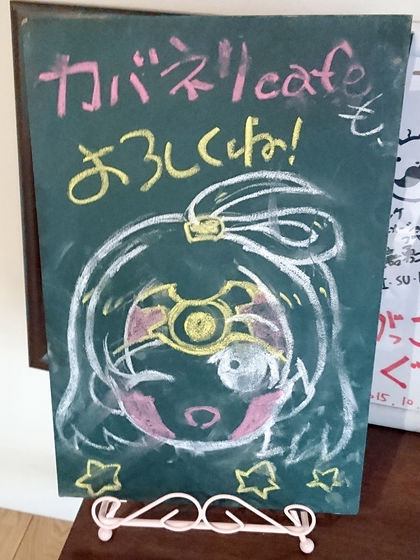 カバネリcafe
も、
よろしくね!